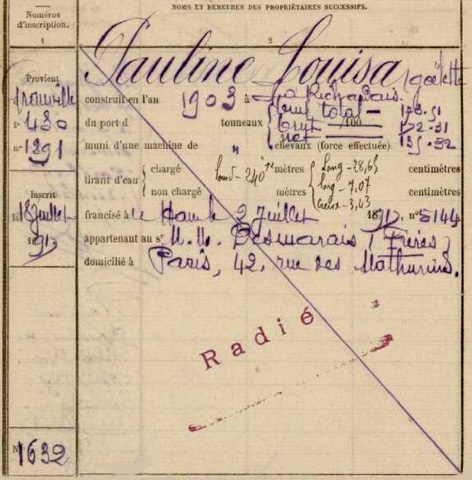 Numéros
d'inscription.
NOMS ET DEMEURES DES PROPRIÉTAIRES SUCCESSIFS.
1
2
Pauline Louisa goëlette
Provient
Trouville
n° 430
n° 1291
construit en l'an 1903 à La Richardais.
du port d tonneaux /100
brut total - 178.51
brut 172.31
net 135.32
muni d'une machine de " chevaux (force effectuée)
tirant d'eau { chargé mètres centimètres
non chargé mètres centimètres
240
long - 28,65
larg - 7.07
creux - 3,43
Inscrit
18 juillet
1917
francisé à le 2 juillet 1917, n° 5144
appartenant au sr M.M. Desmarais (Frères)
domicilié à Paris, 42, rue des Mathurins.
Radié
N° 1632